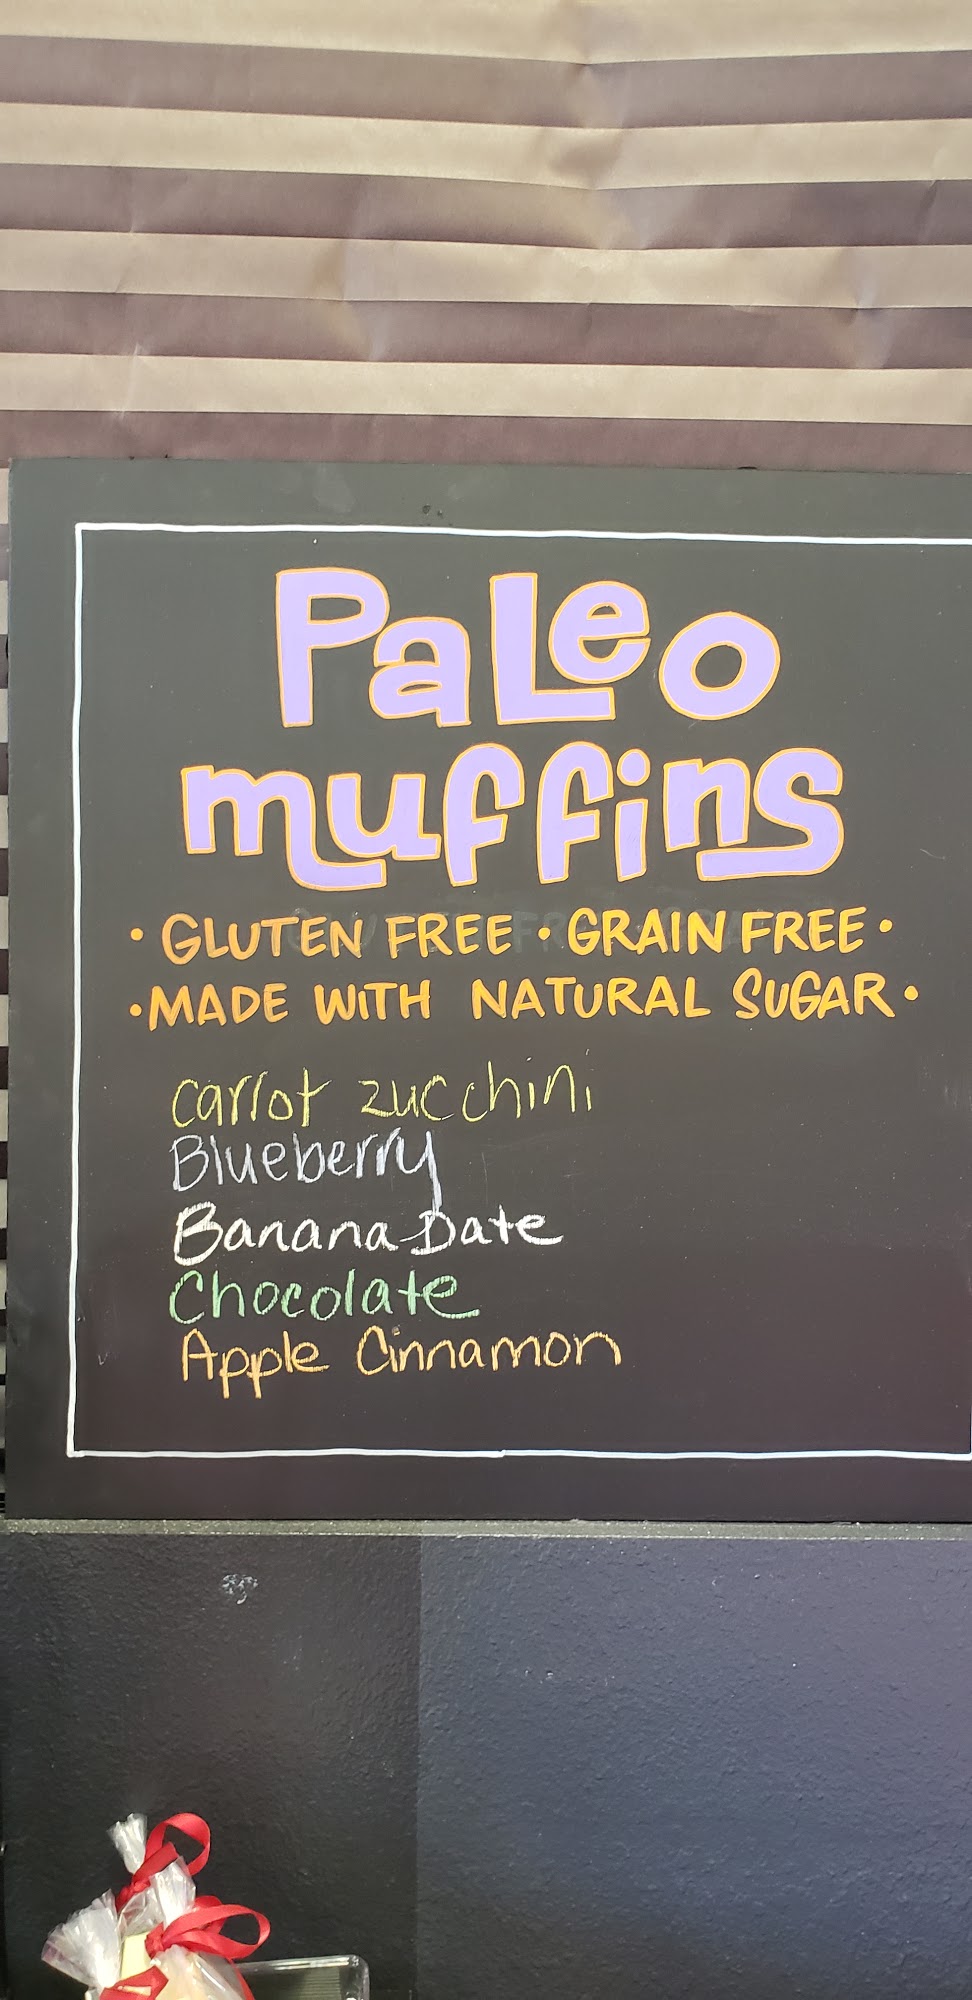 PaLeo
muffins
• GLUTEN FREE • GRAIN FREE •
• MADE WITH NATURAL SUGAR •
carrot zucchini
Blueberry
Banana Date
Chocolate
Apple Cinnamon